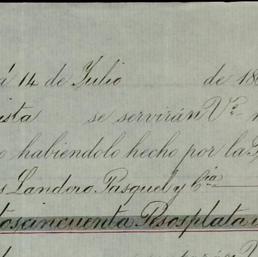 á 14 de Julio de 18
ista se servirán V.ˢ
o habiendolo hecho por la
s Landero Pasquel y C.ia
toscincuenta Pesos plata